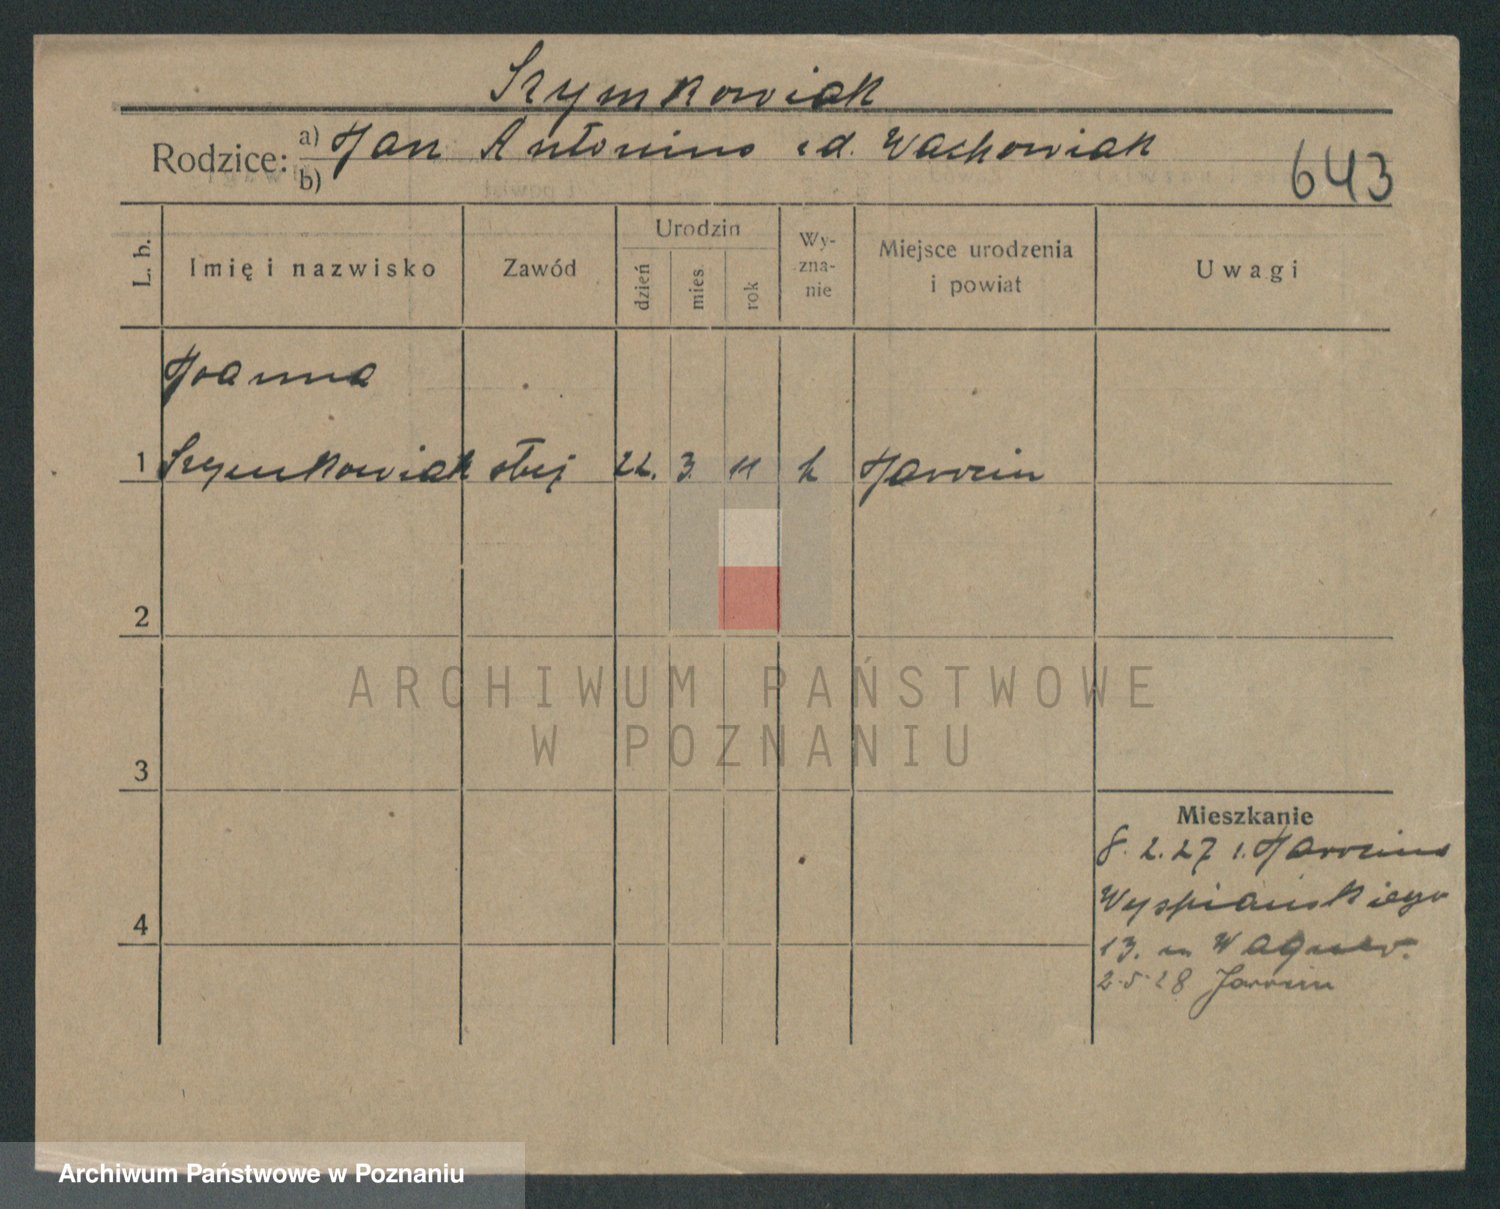 Szymkowiak
Rodzice: a) Jan Antonina z d. Wachowiak
b)
643
L. b.
Imię i nazwisko
Zawód
Urodzin
dzień
mies.
rok
Wy-
zna-
nie
Miejsce urodzenia
i powiat
Uwagi
Joanna
1 Szymkowiak służ 22. 3. 11 k Jarocin
2
3
4
Mieszkanie
8. 2. 27 z Jarocina
Wyspiańskiego
13.
2.5.28 Jarocin
ARCHIWUM PAŃSTWOWE
W POZNANIU
Archiwum Państwowe w Poznaniu